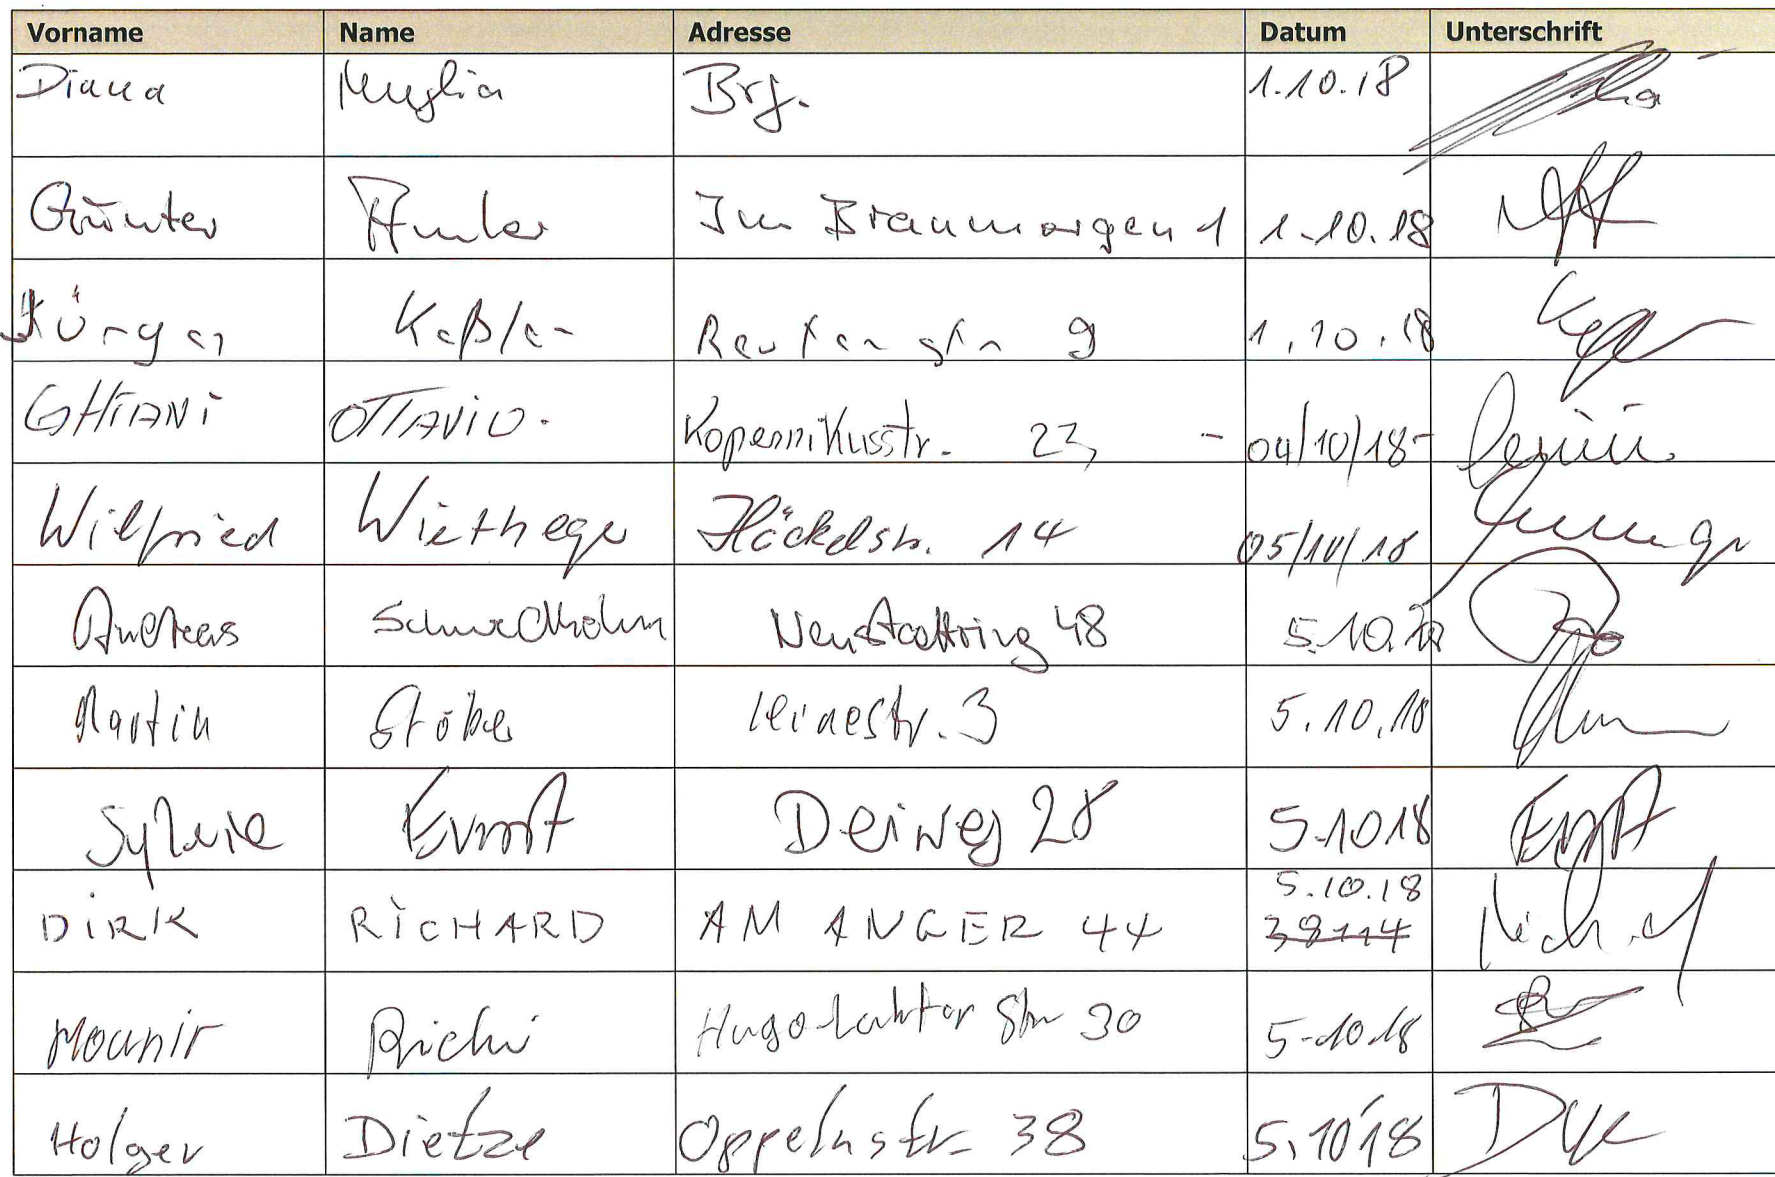 Vorname Name Adresse Datum Unterschrift
Diana Muglia Brg. 1.10.18
Günter Im Braumorgen 1 1.10.18
Jürgen Kaßler 9 1.10.18
GHIANI OTTAVIO. Kopernikusstr. 23 - 04/10/18-
Wilfried Wiethege Häckelstr. 14 05/10/18
Andreas Schwedhelm Neustadtring 48 5.10.18
Martin Gröbe Leinestr. 3 5.10.18
Sylvie Ernst Deiweg 28 5.10.18 Ernst
5.10.18
DIRK RICHARD AM ANGER 44 38114 Richard
Mounir Richi Hugo-Luther Str 30 5-10.18
Holger Dietze Oppelnstr. 38 5.10.18